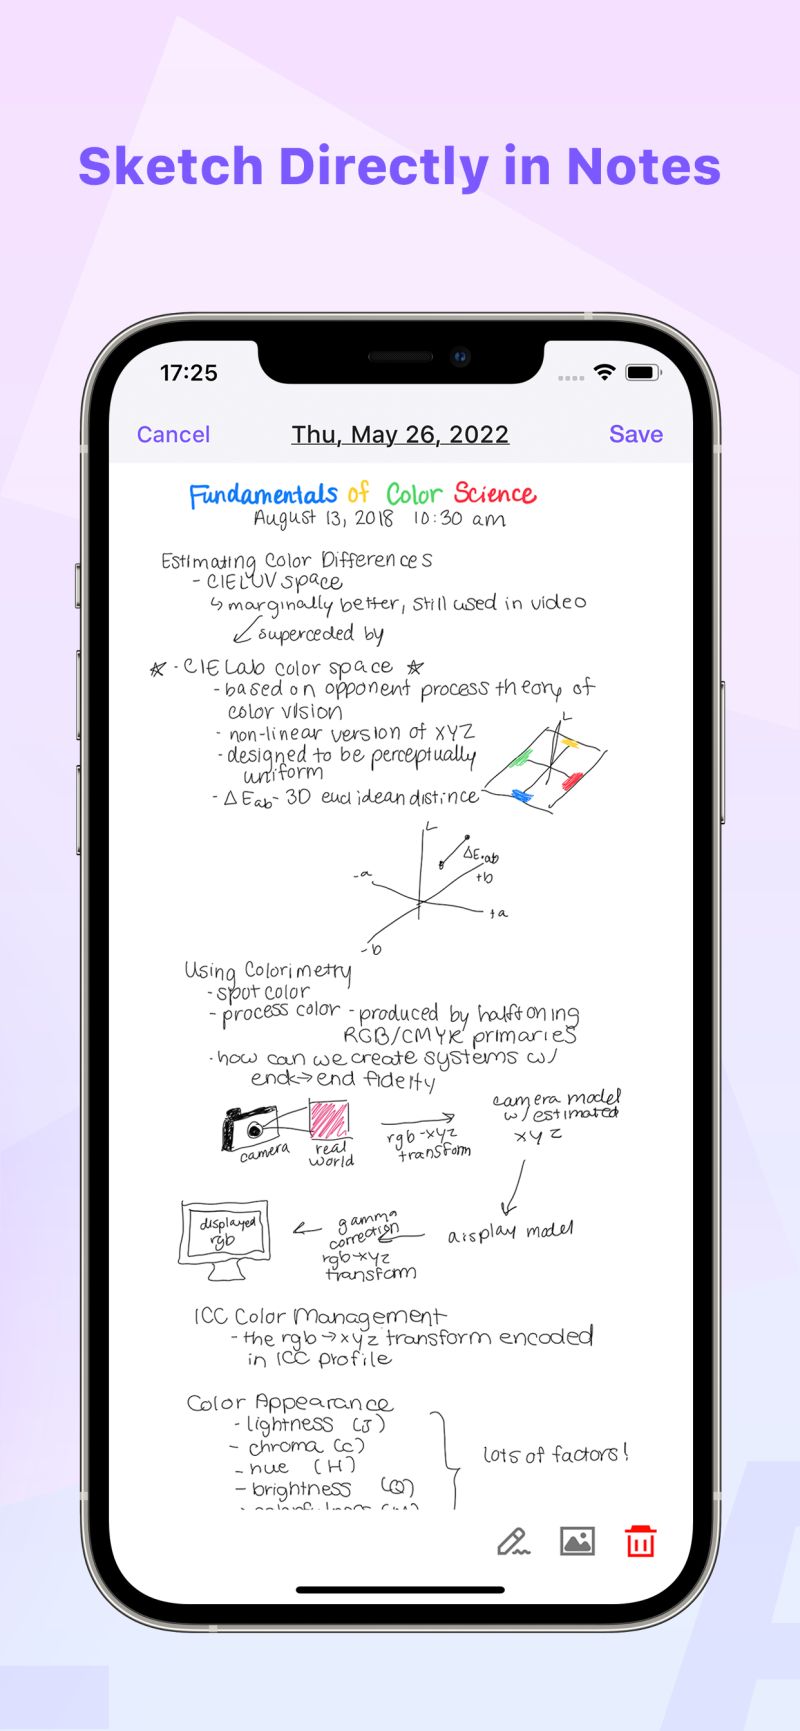 Sketch Directly in Notes
17:25
Cancel
Thu, May 26, 2022
Save
Fundamentals of Color Science
August 13, 2018 10:30 am
Estimating Color Differences
- CIELUV space
↳ marginally better, still used in video
↙ superceded by
☆ - CIELab color space ☆
- based on opponent process theory of
color vision
- non-linear version of XYZ
- designed to be perceptually
uniform
- ΔEab - 3D euclidean distince
L
L
ΔE*ab
-a
+b
+a
-b
Using Colorimetry
- spot color
- process color - produced by halftoning
RGB/CMYK primaries
- how can we create systems w/
end→end fidelity
camera
real
world
rgb→xyz
transform
camera model
w/ estimated
xyz
displayed
rgb
gamma
correction
rgb→xyz
transform
display model
ICC Color Management
- the rgb→xyz transform encoded
in ICC profile
Color Appearance
- lightness (J)
- chroma (C)
- hue (H)
- brightness (Q)
lots of factors!